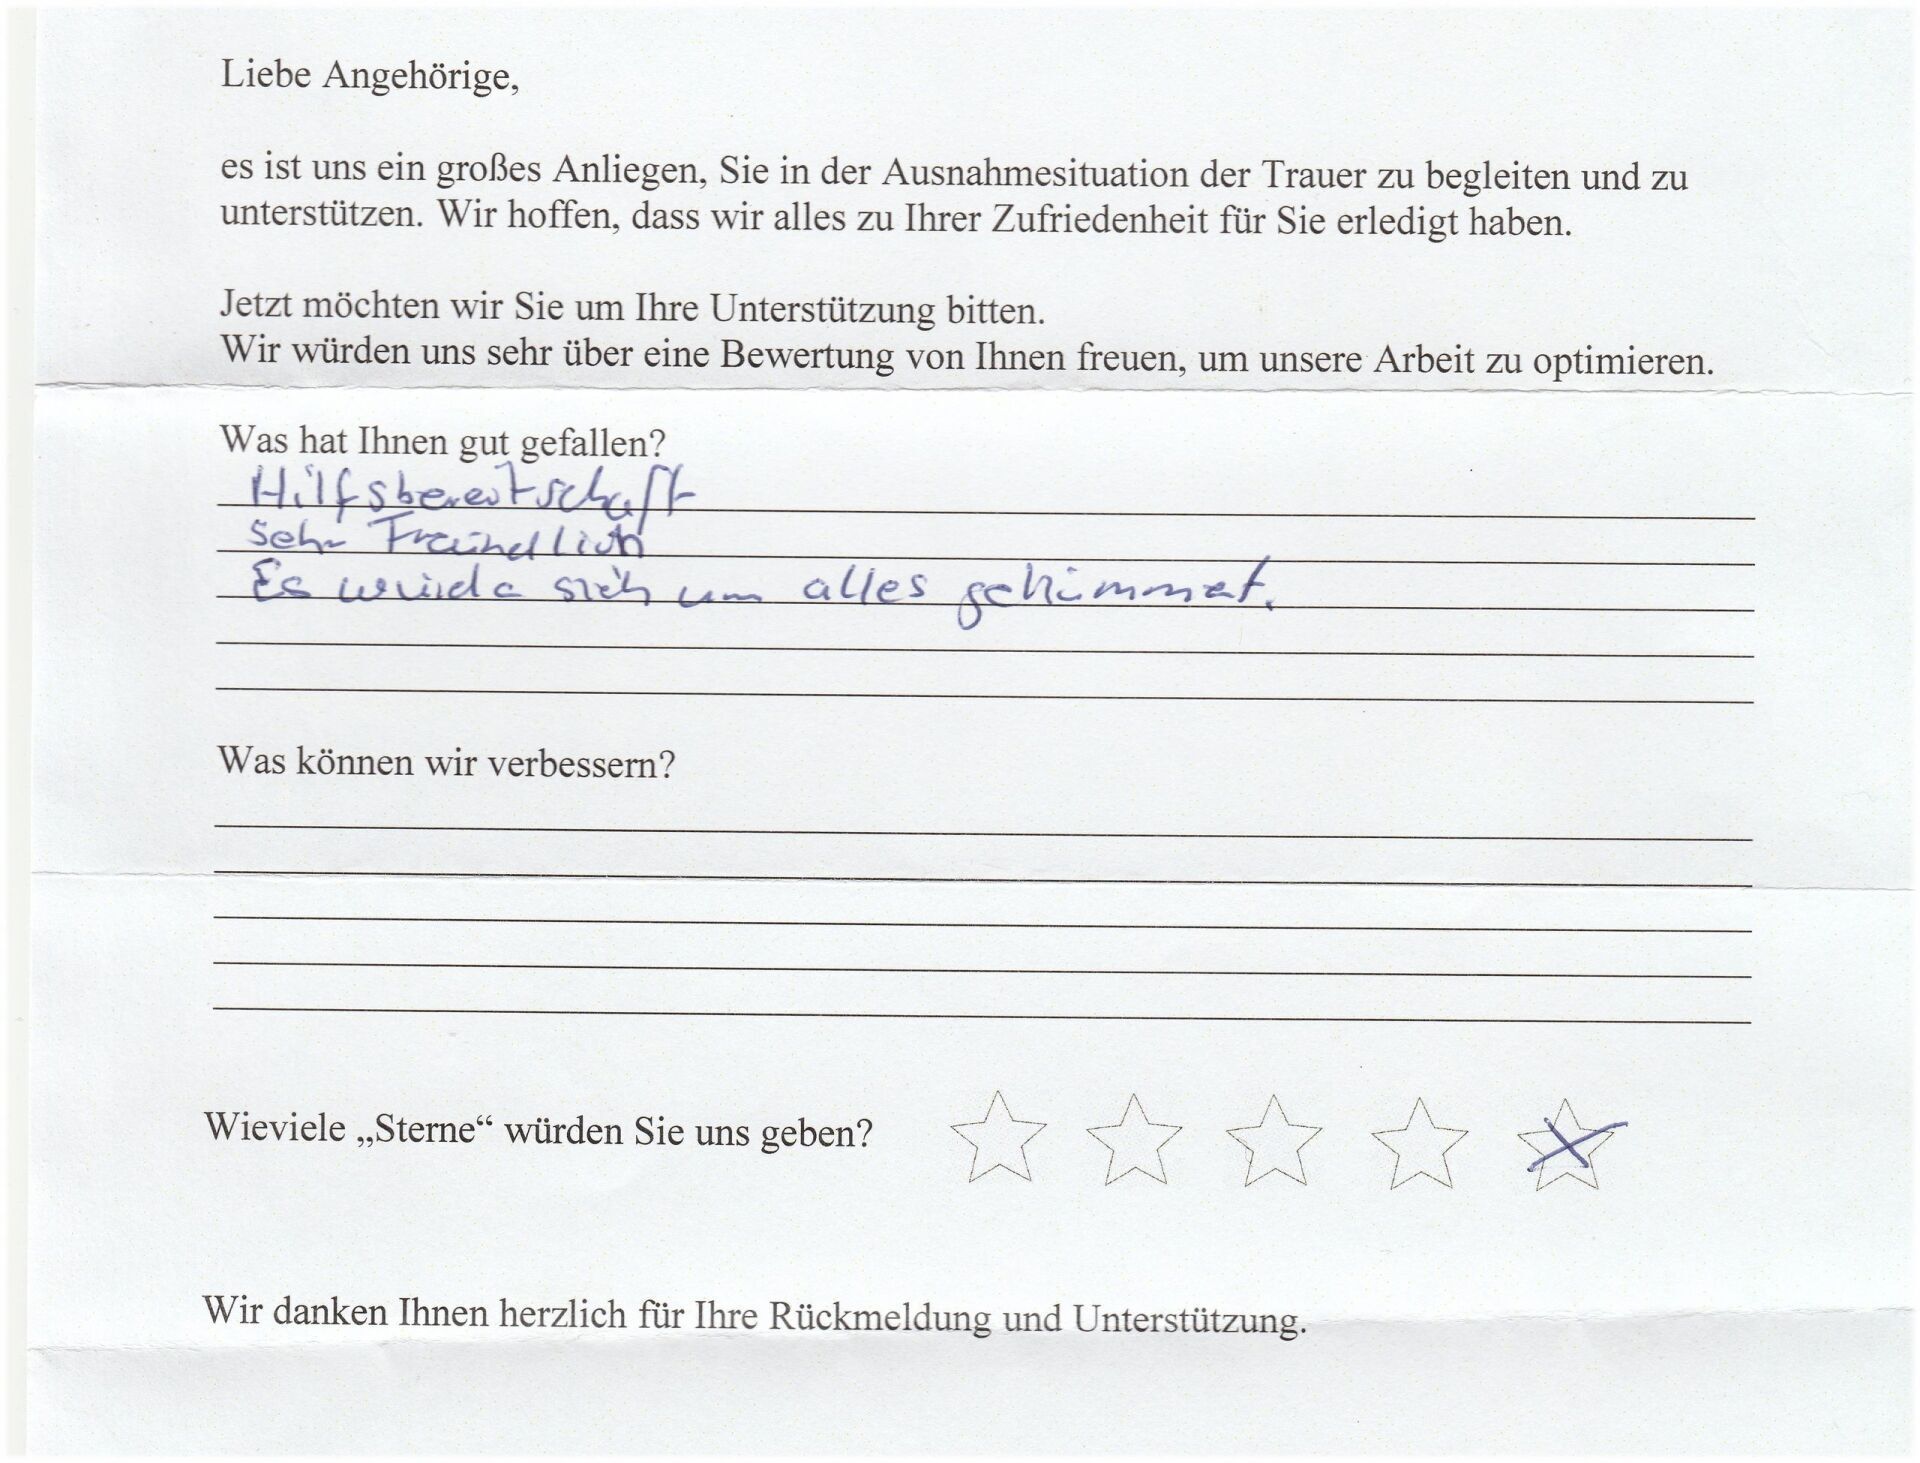 Liebe Angehörige,
es ist uns ein großes Anliegen, Sie in der Ausnahmesituation der Trauer zu begleiten und zu
unterstützen. Wir hoffen, dass wir alles zu Ihrer Zufriedenheit für Sie erledigt haben.
Jetzt möchten wir Sie um Ihre Unterstützung bitten.
Wir würden uns sehr über eine Bewertung von Ihnen freuen, um unsere Arbeit zu optimieren.
Was hat Ihnen gut gefallen?
Hilfsbereitschaft
sehr Freundlich
Es wurde sich um alles gekümmert.
Was können wir verbessern?
Wieviele „Sterne“ würden Sie uns geben?
Wir danken Ihnen herzlich für Ihre Rückmeldung und Unterstützung.